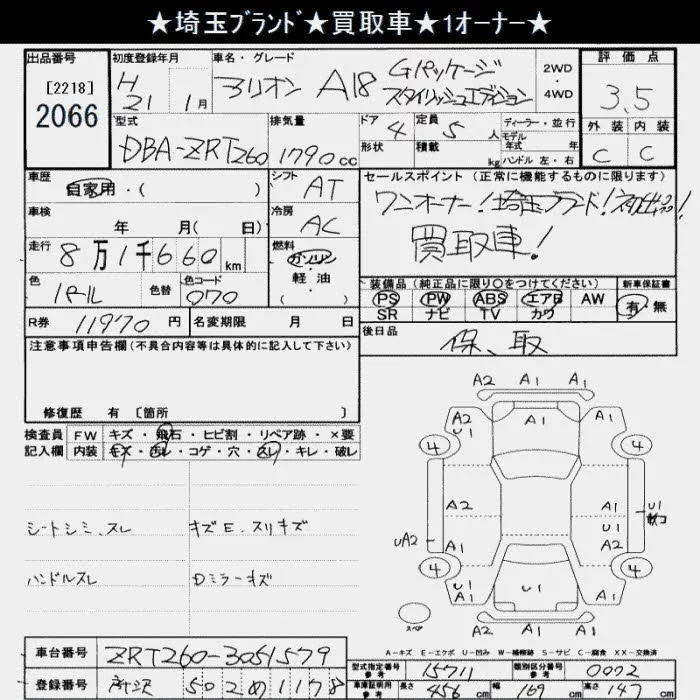 ★埼玉ブランド★買取車★1オーナー★
出品番号 初度登録年月 車名・グレード 評価点
[2218]
2066
H 21 1月
アリオン A18 Gパッケージ
スタイリッシュエディション
2WD
・
4WD
3.5
型式 排気量 ドア 定員 ディーラー・並行
DBA-ZRT260 1790cc 4 5人
モデル年式 年
形状 積載 kg ハンドル 左・右
外装 内装
C C
車歴 自家用・( )
シフト AT
セールスポイント (正常に機能するものに限ります)
ワンオーナー!埼玉ブランド!初出品!
買取車!
車検 年 月( 日)
冷房 AC
走行 8万1千660km
燃料 ガソリン
・
軽油
( )
色 パール 色替 色コード 070
装備品(純正品に限り○をつけてください) 新車保証書
PS PW ABS エアB AW
SR ナビ TV カワ
有・無
R券 11970円 名変期限 月 日
後日品
保、取
注意事項申告欄(不具合内容等は具体的に記入して下さい)
修復歴 有 [箇所 ]
検査員 FW キズ・飛石・ヒビ割・リペア跡・×要
記入欄 内装 キズ・汚レ・コゲ・穴・スレ・キレ・破レ
シートシミ、スレ キズE、スリキズ
ハンドルスレ Dミラーキズ
A2 A1 A1
A2 U1 A1 A1
4 4
A2 A1 U1
U1
UA2 A1 A2
4 4
U1 A1 U1 A1
スペア
U1 A1 A1
A-キズ E-エクボ U-凹み W-補修跡 S-サビ C-腐食 XX-交換済
車台番号 ZRT260-3051579
登録番号 所沢 502 め 1178
型式指定番号 参考 15711 類別区分番号 参考 0092
車庫証明用 参考 長さ 456cm 幅 169cm 高さ 147cm